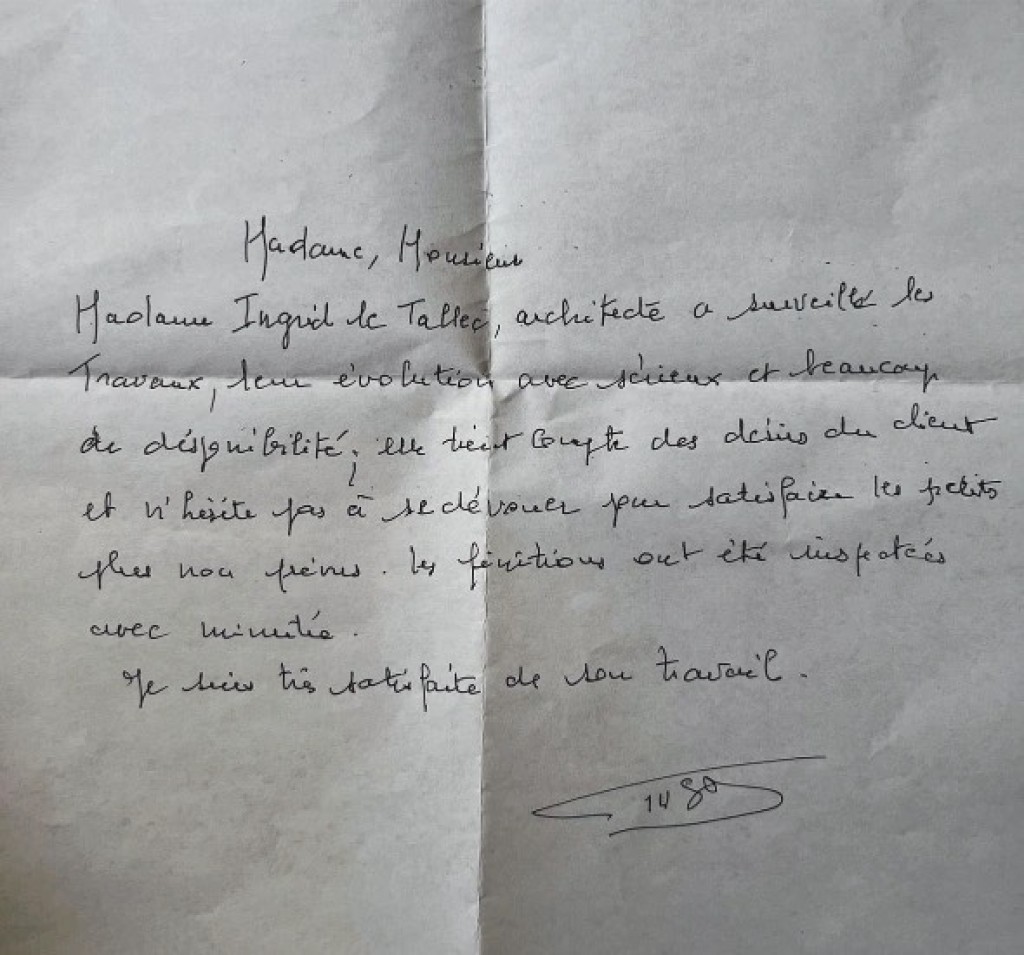 Madame, Monsieur
Madame Ingrid le Tallec, architecte a surveillé les
Travaux, leur évolution avec sérieux et beaucoup
de disponibilité, elle tient compte des désirs du client
et n'hésite pas à se dévouer pour satisfaire les petits
plus non prévus. les finitions ont été inspectées
avec minutie.
Je suis très satisfaite de son travail.